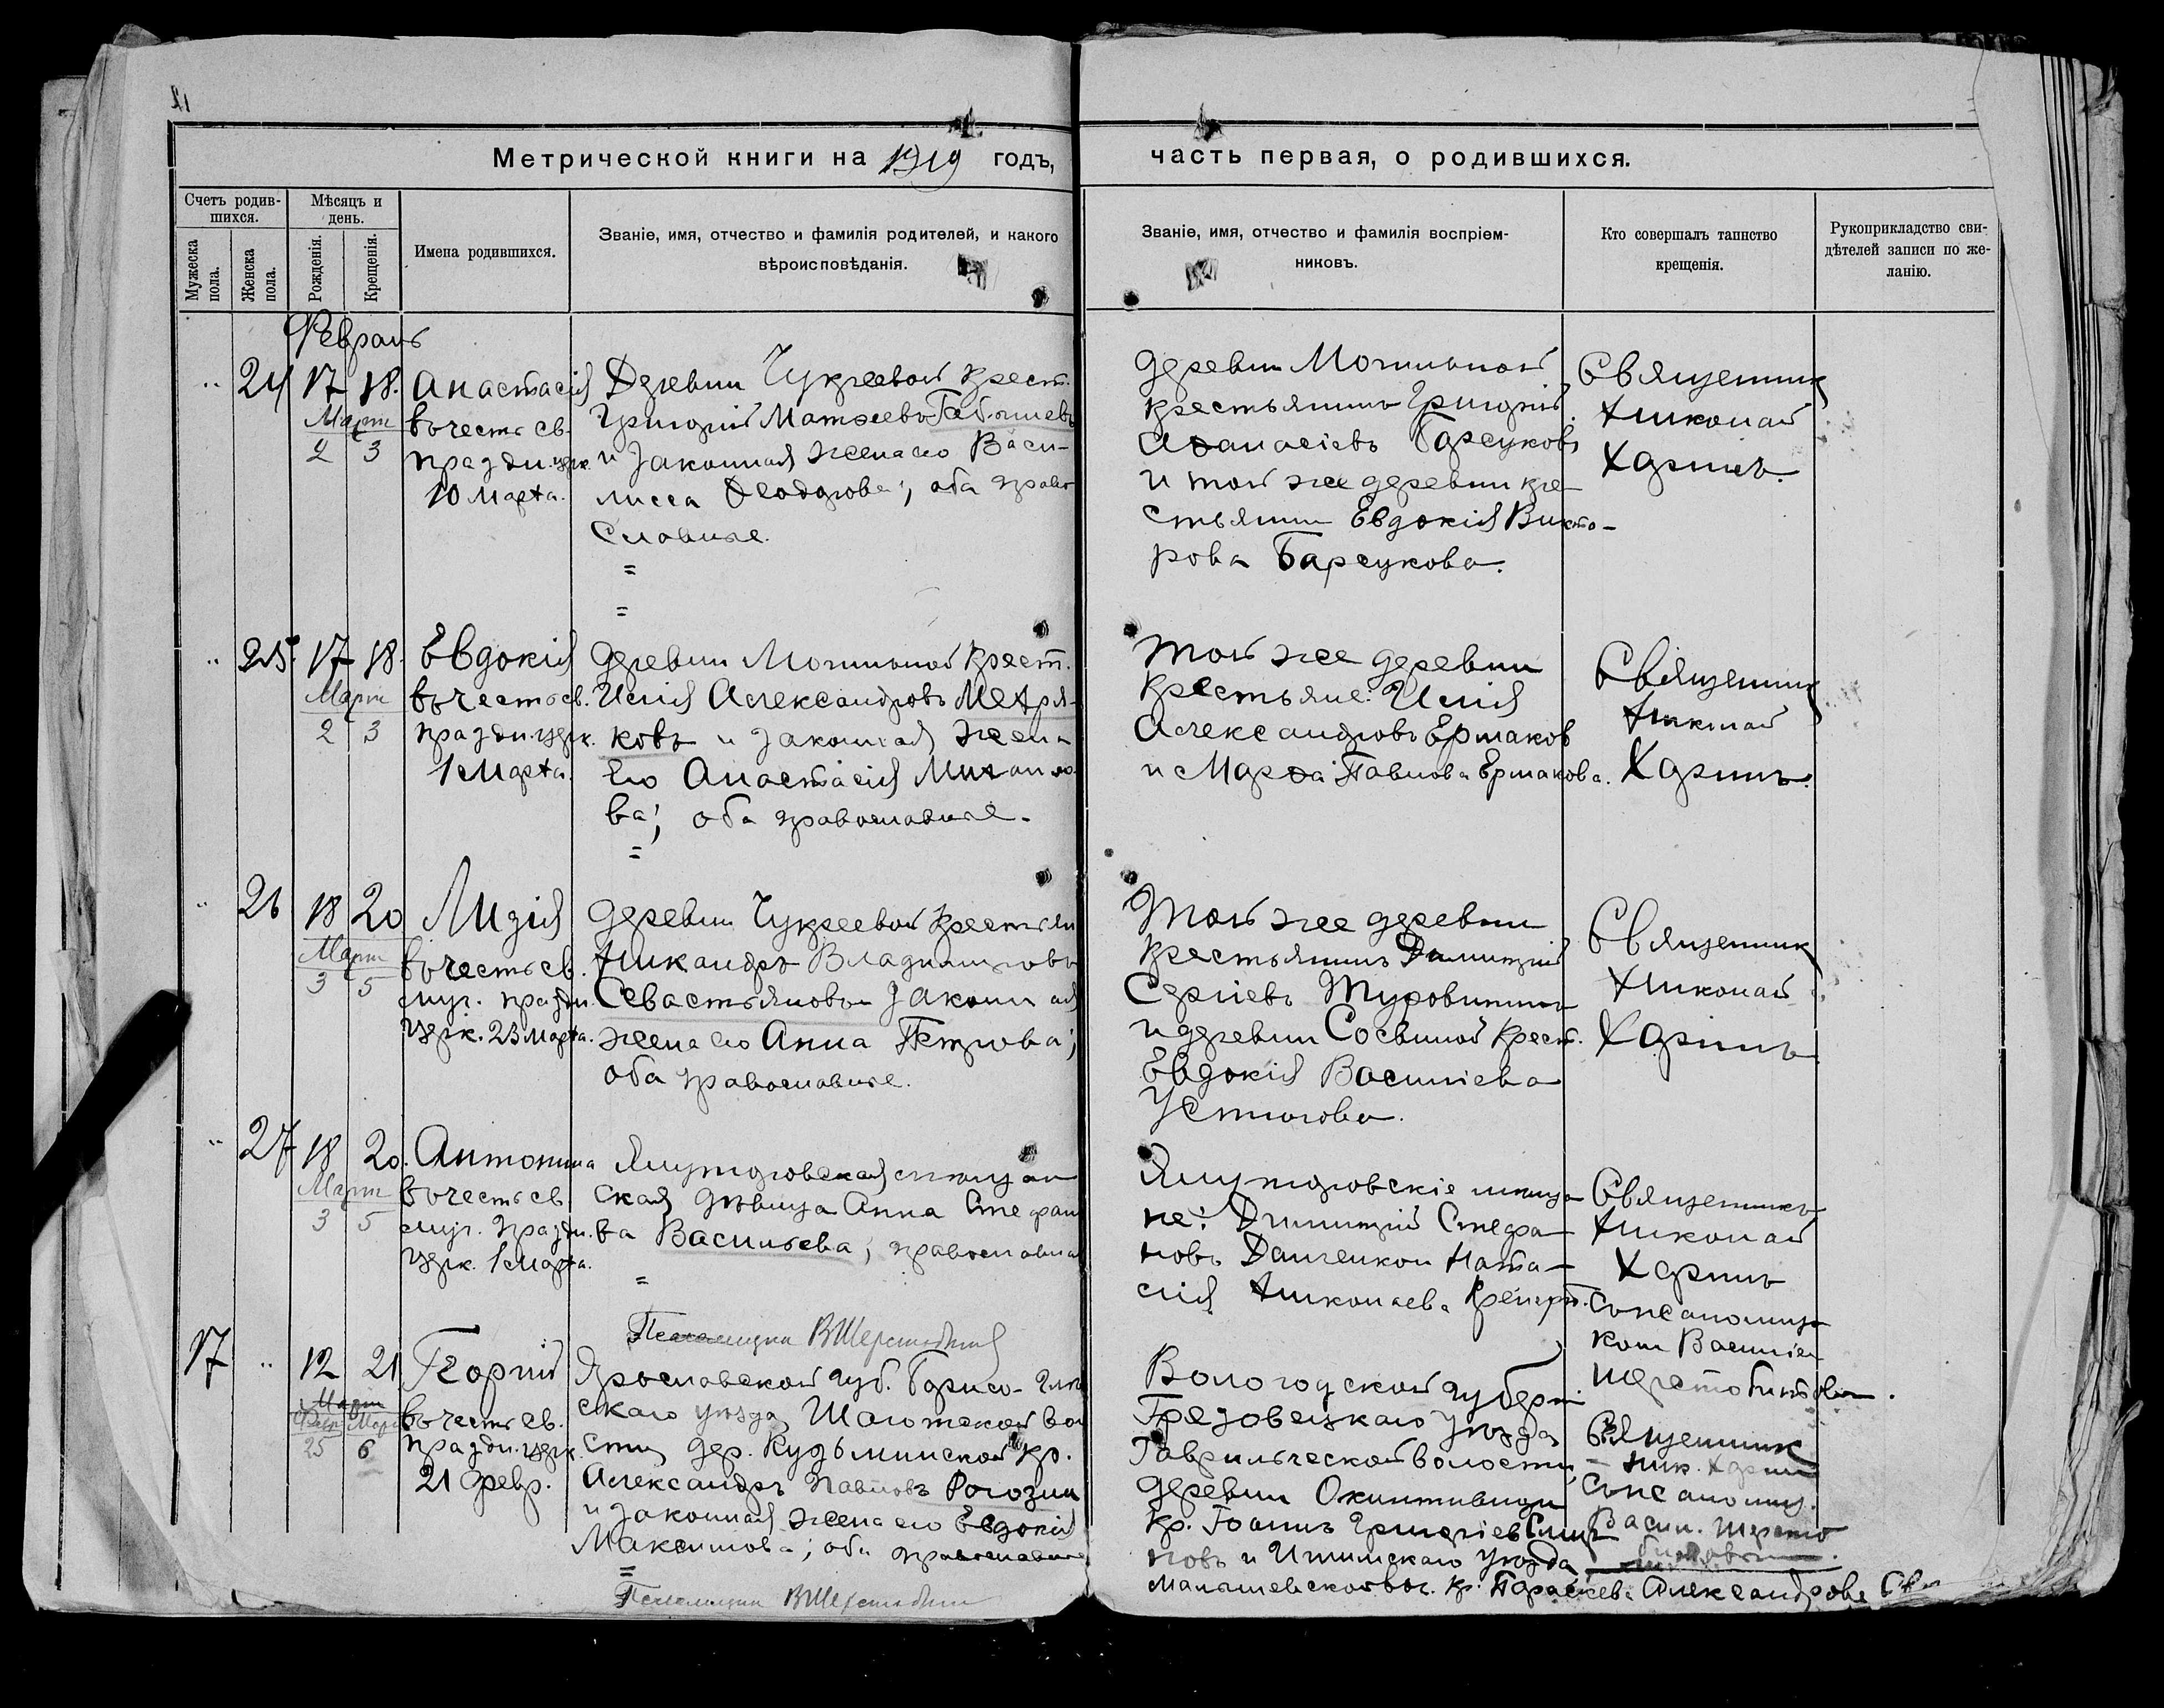 Метрической книги на 1919 годъ,
часть первая, о родившихся.
Счетъ родив-
шихся.
Мужеска
пола.
Женска
пола.
Мѣсяцъ и
день.
Рожденія.
Крещенія.
Имена родившихся.
Званіе, имя, отчество и фамилія родителей, и какого
вѣроисповѣданія.
Званіе, имя, отчество и фамилія воспріем-
никовъ.
Кто совершалъ таинство
крещенія.
Рукоприкладство сви-
дѣтелей записи по же-
ланію.
Февраль
„ 24 17 18.
Март
2 3
Анастасія
въ честь св.
праздн. церк.
10 Марта.
Деревни Чукреевой крест.
Григорій Матѳеевъ
и законная жена его Васи-
лисса Ѳеодорова; оба право
славные.
деревни Могильной
крестьянинъ Григорій
Аѳанасіевъ Барсуковъ
и той же деревни кре-
стьянин Евдокія Викто-
рова Барсукова.
Священник
Николай
Харинъ.
„ 25. 17 18.
Март
2 3
Евдокія
въ честь св.
праздн. церк.
1 Марта.
деревни Могильной крест.
Илія Александровъ Метря-
ковъ и законная жена
его Анастасія Михаило-
ва; оба православные.
Той же деревни
крестьяне: Илія
Александровъ Ермаков
и Марѳа Павлова Ермакова.
Священник
Николай
Харинъ.
„ 26 18 20
Март
3 5
Лидія
въ честь св.
муч. праздн.
церк. 23 Марта.
деревни Чукреевой крестьян
Никандръ Владиміровъ
Севастьяновъ и законная
жена его Анна Петрова;
оба православные.
Той же деревни
крестьянинъ Димитрій
Сергіевъ Туровининъ
и деревни Сосвиной крест.
Евдокія Василіева
Устюгова.
Священник
Николай
Харинъ
„ 27 18 20.
Март
3 5
Антонина
въ честь св.
муч. праздн.
церк. 1 Марта.
Ялуторовская мѣщан
ская дѣвица Анна Стефан
ва Васильева; православная
Ялуторовскіе мѣща-
не: Димитрій Стефа-
новъ Данченко и Ната-
лія Николаева
Священникъ
Николай
Харинъ
съ псаломщи
ком Василіем
Шерстобитовым.
Псаломщик В Шерстобитов
17 „ 12 21
Март
Февр Март
25 6
Георгій
въ честь св.
праздн. церк.
21 Февр.
Ярославской губ. Борисо-Глѣб
скаго уѣзда, Шаготской воло
сти, дер. Кудьминской кр.
Александръ Павловъ Рогозин
и законная жена его Евдокія
Максимова; оба православные
Вологодской губерн.
Грязовецкаго уѣзда,
волости,
деревни
кр. Іоаннъ Григорієв
новъ и Ишимскаго уѣзда
Малышевской вол. кр. Параскева Александрова
Священник
Ник. Харин
съ псаломщ.
Васил. Шерсто
битовым.
Псаломщик В Шерстобитов